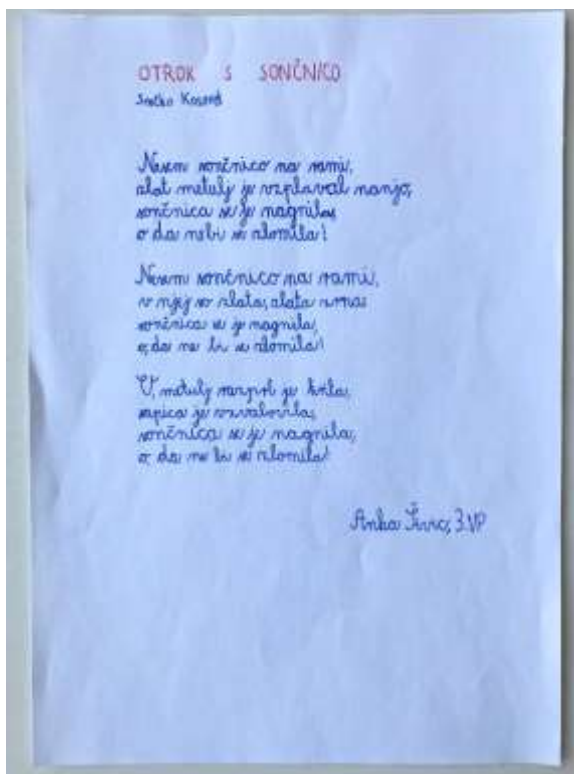 OTROK S SONČNICO
Srečko Kosovel
Nesem sončnico na rami,
zlat metulj je vzplaval nanjo,
sončnica se je nagnila,
o da nebi se zlomila!
Nesem sončnico na rami,
v njej so zlata, zlata zrna
sončnica se je nagnila,
o, da ne bi se zlomila!
U, metulj razprl je krila,
sapica je zavalovila,
sončnica se je nagnila,
o da ne bi se zlomila!
Anka 3.VP